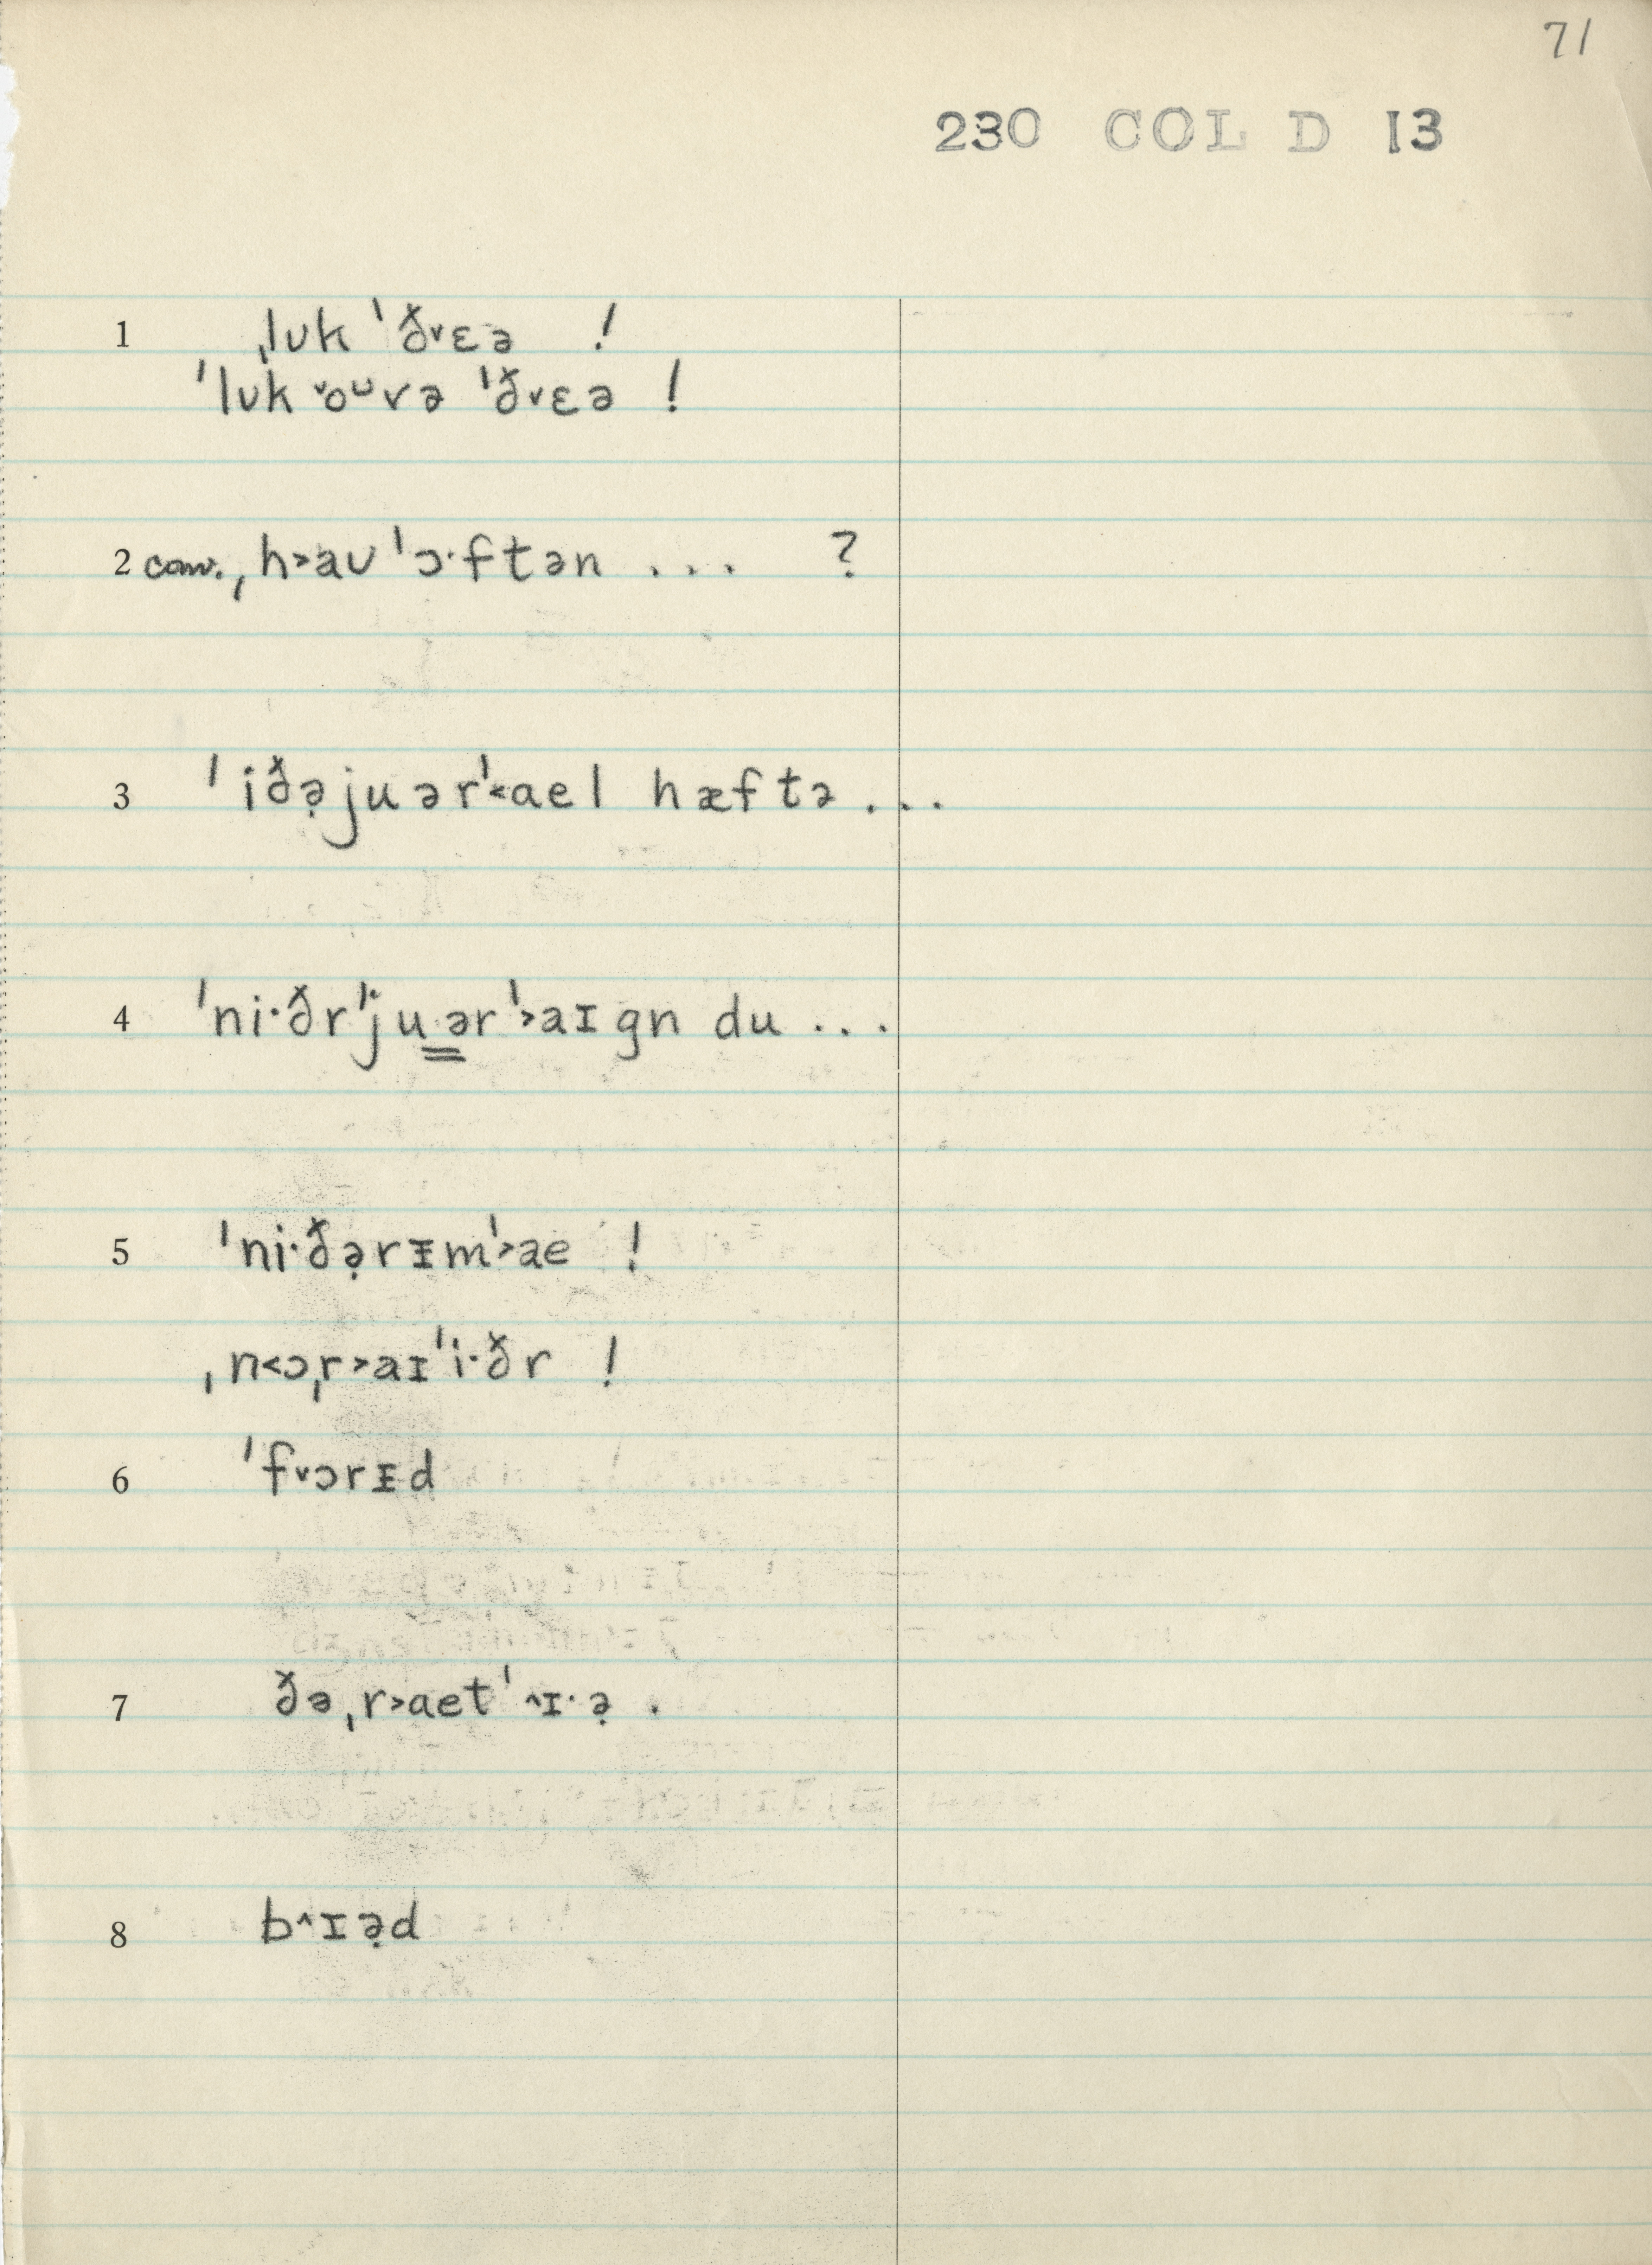 71
230 COL D 13
1 ˌlʊk ˈð˅ɛə !
ˈlʊk ˅oᵘvə ˈð˅ɛə !
2 conv. ˌh˃aʊ ˈɔ·ftən ... ?
3 ˈiðə̣juərˈ˂ael hæftə ...
4 ˈni·ðrˈju̳ə̳rˈ˃aɪgn du ...
5 ˈni·ðə̣rɪ̵mˈ˃ae !
ˌn˂ɔˌr˃aɪˈi·ðr !
6 ˈf˅ɔrɪ̵d
7 ðəˌr˃aetˈ˄ɪ·ə̣ .
8 b˄ɪə̣d